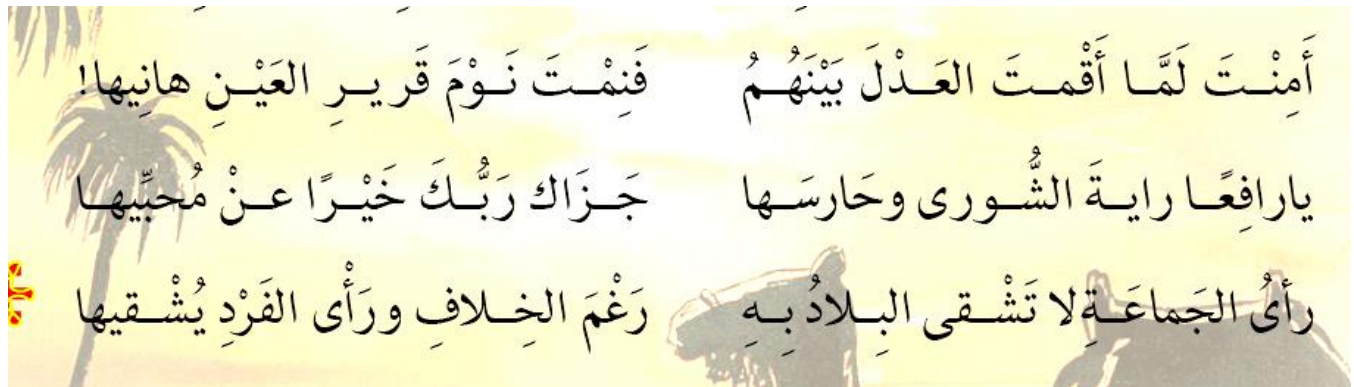 أَمِنْتَ لَمَّا أَقْمتَ العَدْلَ بَيْنَهُمُ فَنِمْتَ نَوْمَ قَريرِ العَيْنِ هانِيها!
يارافِعًا رايةَ الشُّورى وحَارسَها جَزَاك رَبُّكَ خَيْرًا عنْ مُحبِّيها
رأىُ الجَماعَةِ لا تَشْقى البِلادُ بِهِ رَغْمَ الخِلافِ ورَأْى الفَرْدِ يُشْقيها